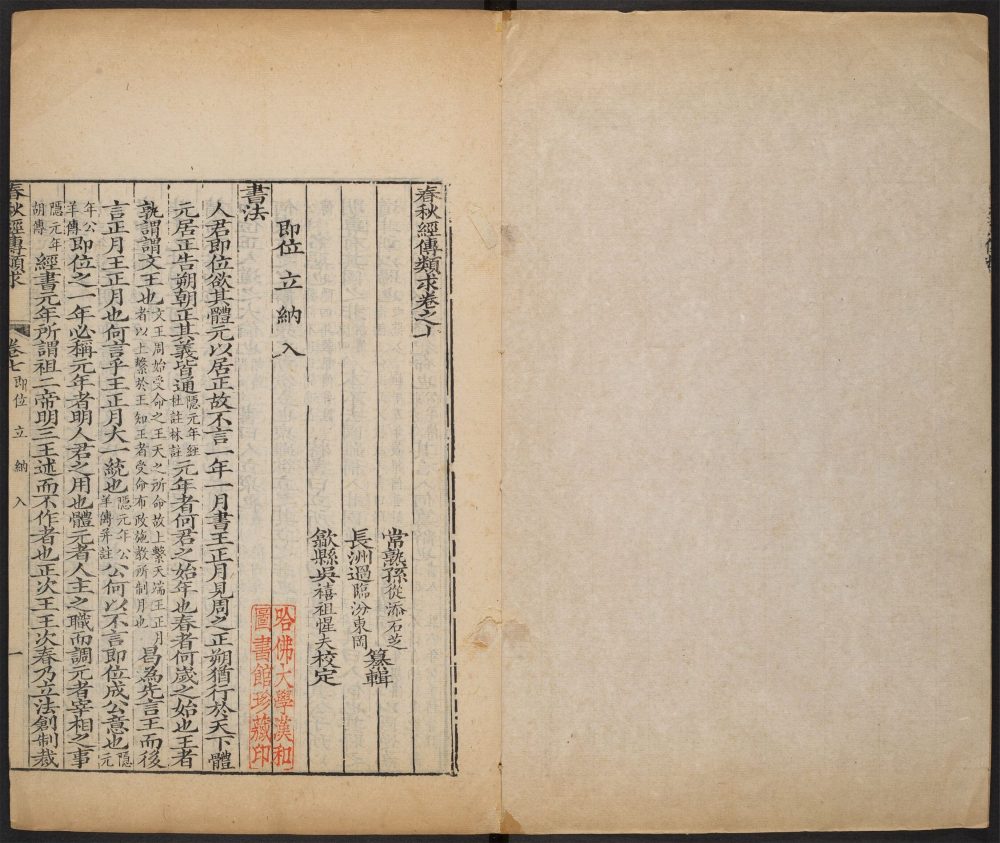 春秋經傳類求卷之
常熟孫從添石芝
長洲過臨汾東岡
纂輯
歙縣吳禧祖惺夫校定
即位 立 納 入
書法
人君即位欲其體元以居正故不言一年一月書王正月見周之正朔猶行於天下體
元居正告朔朝正其義皆通隱元年經杜註林註元年者何君之始年也春者何歲之始也王者
孰謂謂文王也文王周始受命之王天之所命故上繫天端王正月者以上繫於王知王者受命布政施教所制月也曷為先言王而後
言正月王正月也何言乎王正月大一統也隱元年公羊傳并註公何以不言即位成公意也隱元
年公羊傳即位之一年必稱元年者明人君之用也體元者人主之職而調元者宰相之事
隱元年胡傳經書元年所謂祖二帝明三王述而不作者也正次王王次春乃立法創制裁
春秋經傳類求
卷七
即位 立 納 入
一
哈佛大學漢和
圖書館珍藏印